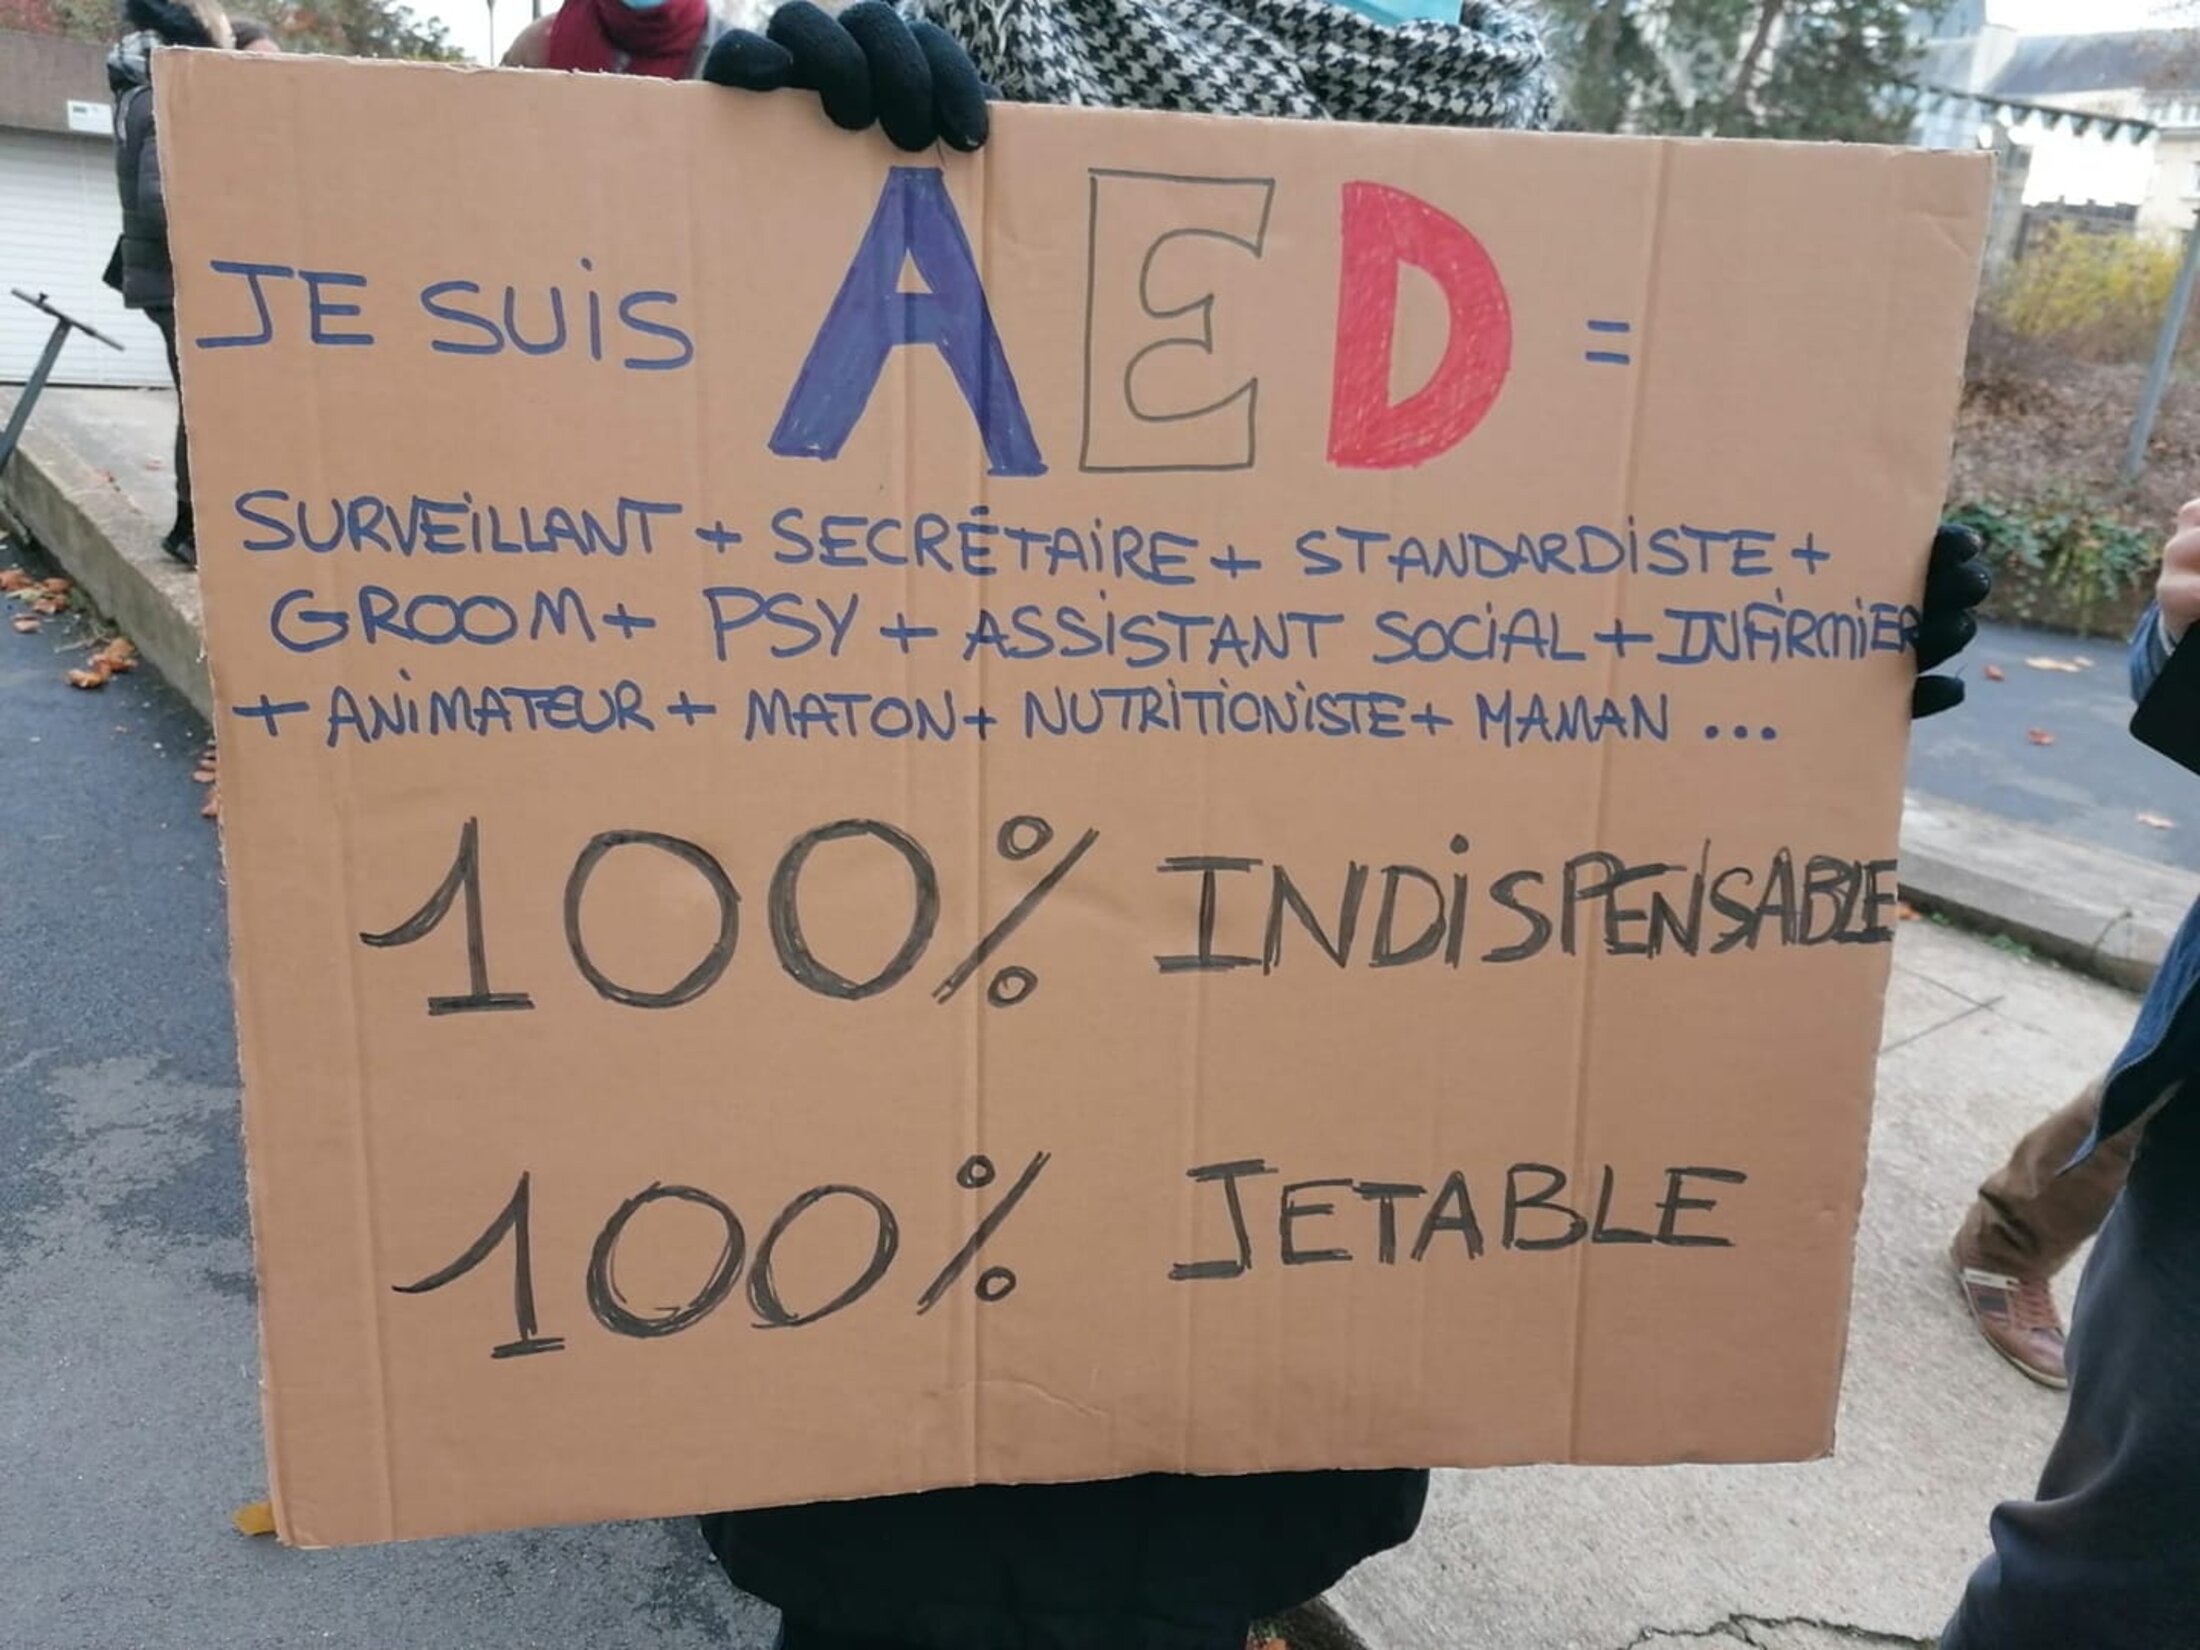 JE SUiS AED =
SURVEiLLANT + SECRÉTAiRE + STANDARDiSTE +
GROOM + PSY + ASSiSTANT SOCiAL + INFiRMiER
+ ANiMATEUR + MATON + NUTRiTiONiSTE + MAMAN ...
100% INDiSPENSABLE
100% JETABLE